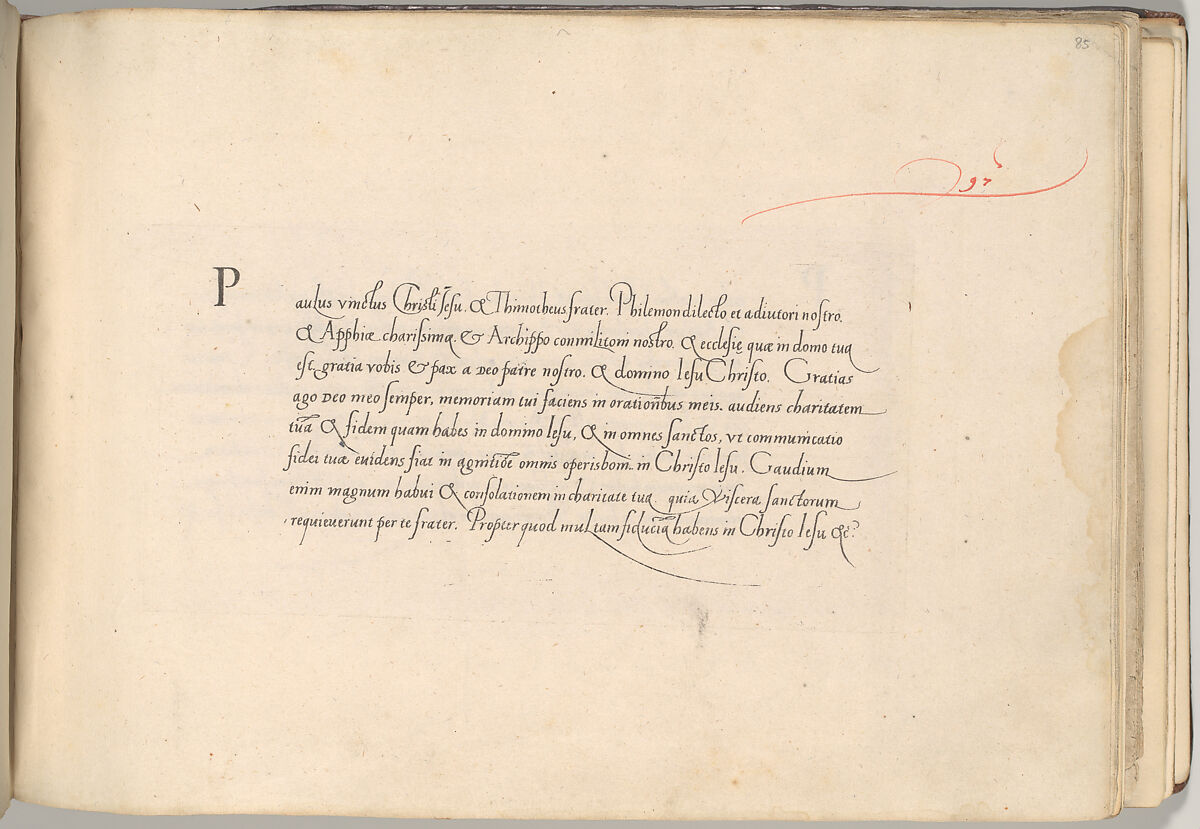 85
97
Paulus vinctus Christi Iesu. & Thimotheus frater. Philemon dilecto et adiutori nostro.
& Apphiæ charissimæ. & Archippo conmilitoni nostro. & ecclesię quæ in domo tua
est, gratia vobis & pax a Deo patre nostro. & domino Iesu Christo. Gratias
ago Deo meo semper, memoriam tui faciens in orationibus meis. audiens charitatem
tuā & fidem quam habes in domino Iesu, & in omnes sanctos, vt communicatio
fidei tuæ euidens fiat in agnitiōe omnis operis bom̄. in Christo Iesu. Gaudium
enim magnum habui & consolationem in charitate tua quia Viscera sanctorum
requieuerunt per te frater. Propter quod multam fiduciā habens in Christo Iesu &c?